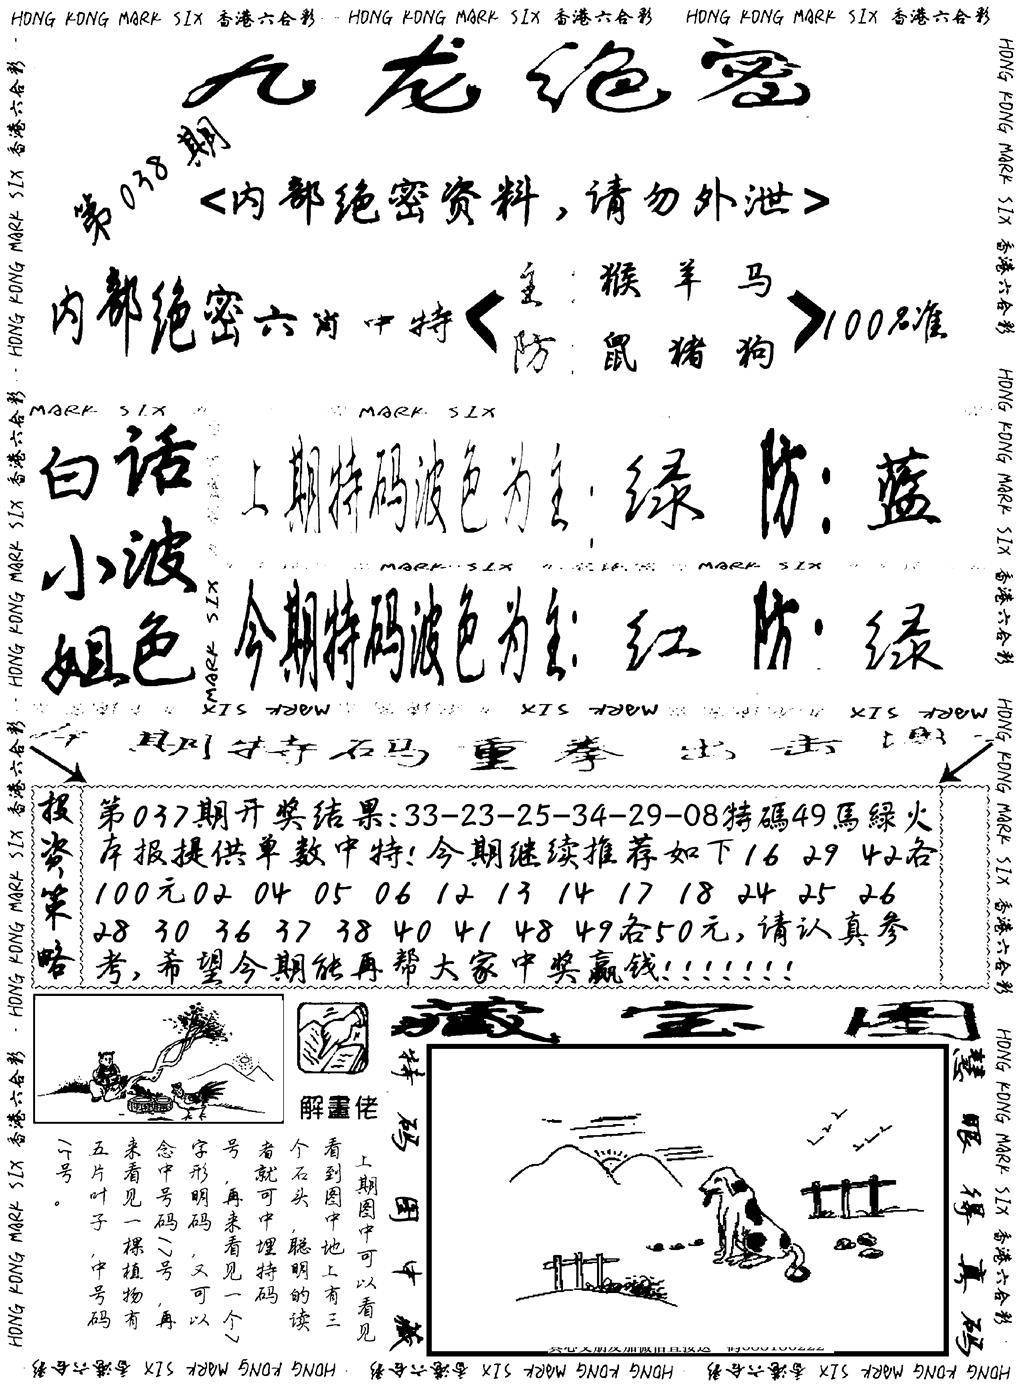 HONG KONG MARK SIX 香港六合彩 HONG KONG MARK SIX 香港六合彩 HONG KONG MARK SIX 香港六合彩
九龙绝密
第038期
<内部绝密资料,请勿外泄>
内部绝密六肖中特
主:猴羊马
防:鼠猪狗
100%准
MARK SIX MARK SIX
白话小姐波色
上期特码波色为主:绿 防:蓝
MARK SIX MARK SIX
今期特码波色为主:红 防:绿
MARK SIX MARK SIX MARK SIX
今期特码重拳出击
投资策略
第037期开奖结果:33-23-25-34-29-08特碼49馬綠火
本报提供单数中特!今期继续推荐如下16 29 42各
100元02 04 05 06 12 13 14 17 18 24 25 26
28 30 36 37 38 40 41 48 49各50元,请认真参
考,希望今期能再帮大家中奖赢钱!!!!!!!
解畫佬
上期图中可以看见
看到图中地上有三
个石头,聪明的读
者就可中埋特码
号,再来看见一个7
字形明码,又可以
念中号码7号,再
来看见一棵植物有
五片叶子,中号码
5号。
藏宝图
特码图中藏
慧眼得真码
HONG KONG MARK SIX 香港六合彩 HONG KONG MARK SIX 香港六合彩 HONG KONG MARK SIX 香港六合彩